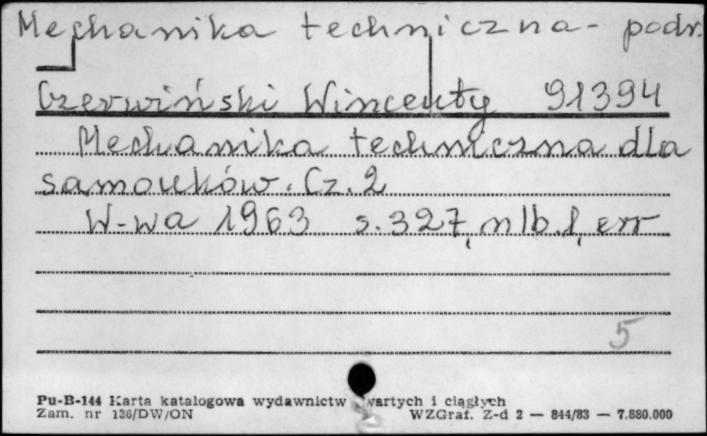 Mechanika techniczna - podr.
Czerwiński Wincenty 91394
Mechanika techniczna dla
samouków. Cz. 2
W-wa 1963 s. 327, nlb. 1, err
5
Pu-B-144 Karta katalogowa wydawnictw zwartych i ciągłych
Zam. nr 136/DW/ON WZGraf. Z-d 2 — 844/83 — 7.880.000